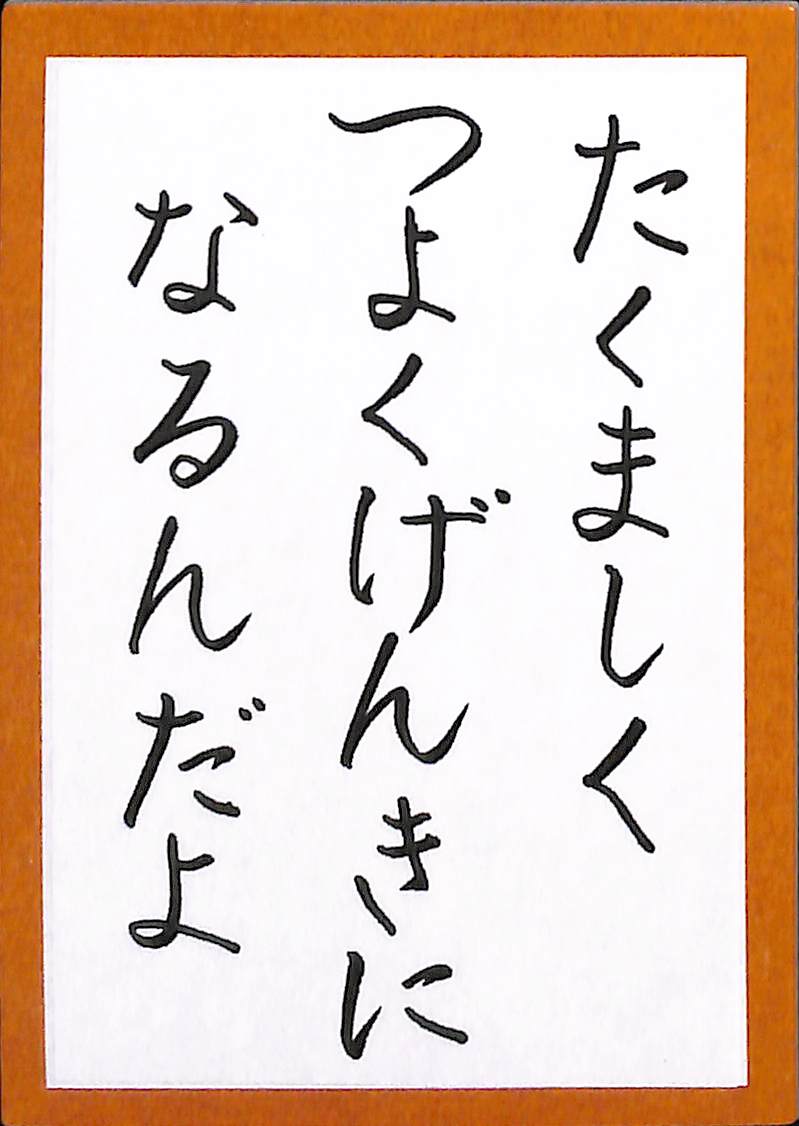 たくましく
つよくげんきに
なるんだよ